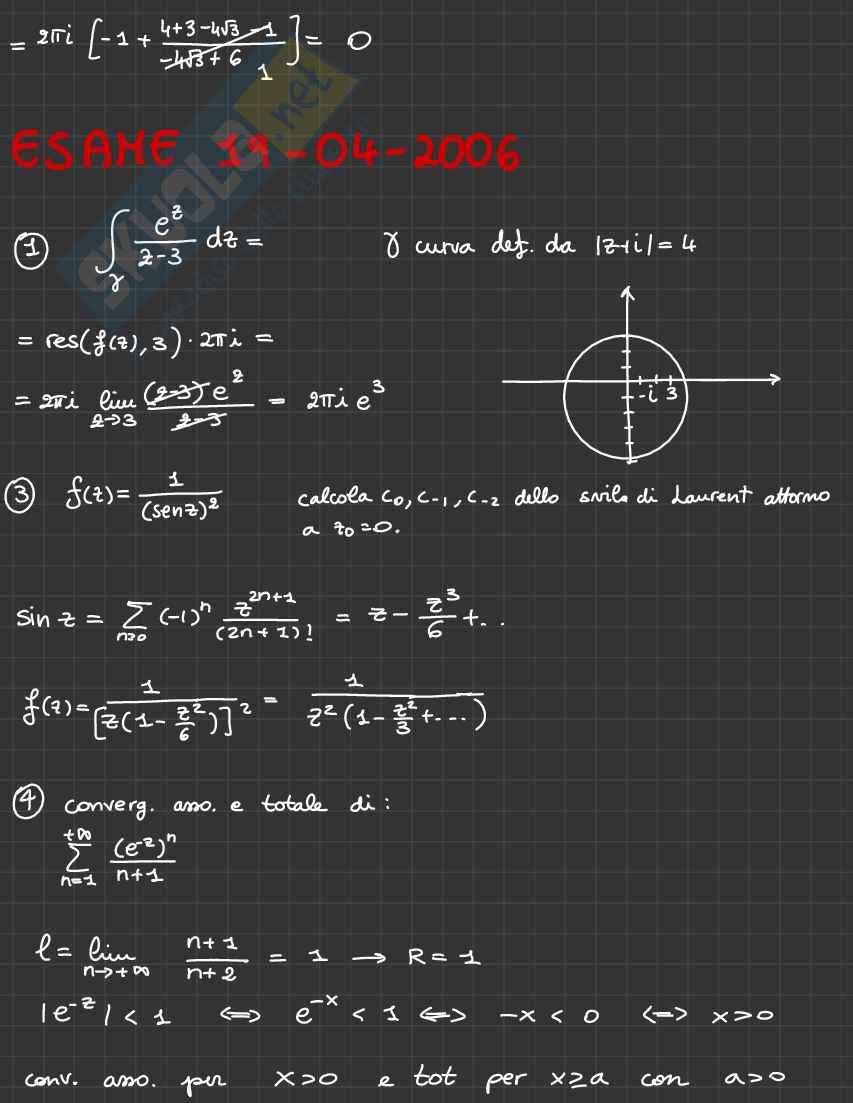 = 2πi [-1 + (4+3-4√3-1)/(-4√3+6) 1] = 0
ESAME 19-04-2006
① ∫γ e^z/(z-3) dz =
γ curva def. da |z+i| = 4
= res(f(z), 3) · 2πi =
= 2πi lim z→3 (z-3)e^z/(z-3) = 2πi e^3
-i 3
③ f(z) = 1/(sen z)^2
calcola c0, c-1, c-2 dello svil. di Laurent attorno
a z0 = 0.
sin z = Σ n≥0 (-1)^n z^(2n+1)/(2n+1)! = z - z^3/6 + ..
f(z) = 1/[z(1 - z^2/6)]^2 = 1/z^2(1 - z^2/3 + ...)
④ converg. ass. e totale di:
Σ n=1 +∞ (e^-z)^n/(n+1)
l = lim n→+∞ (n+1)/(n+2) = 1 → R = 1
|e^-z| < 1 <=> e^-x < 1 <=> -x < 0 <=> x>0
conv. ass. per x>0 e tot per x≥a con a>0
SKUOLA.net